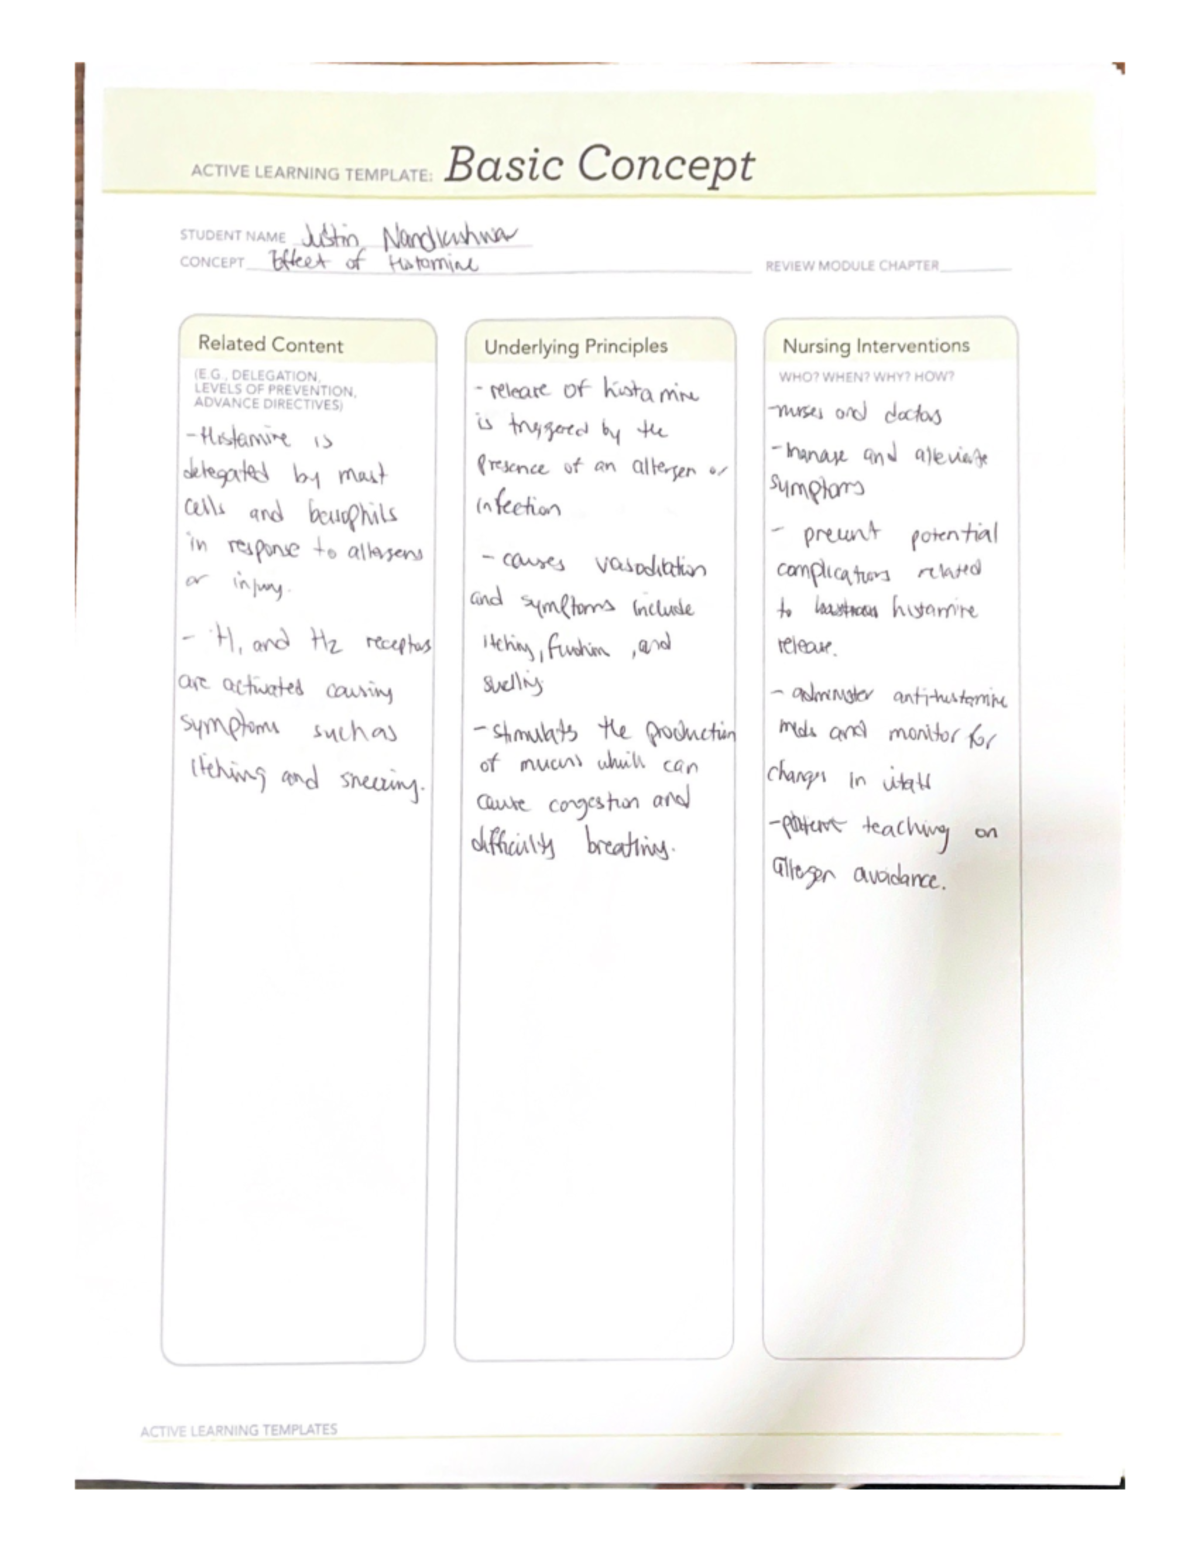 ACTIVE LEARNING TEMPLATE: Basic Concept
STUDENT NAME Justin
CONCEPT Effect of Histamine
REVIEW MODULE CHAPTER
Related Content
(E.G., DELEGATION,
LEVELS OF PREVENTION,
ADVANCE DIRECTIVES)
-Histamine is
delegated by mast
cells and
in response to allergens
or injury.
- H1 and H2 receptors
are activated causing
symptoms such as
itching and sneezing.
Underlying Principles
- release of histamine
is triggered by the
presence of an allergen or
infection
- causes vasodilation
and symptoms include
itching, , and
swelling
- stimulates the production
of mucus which can
cause congestion and
difficulty breathing.
Nursing Interventions
WHO? WHEN? WHY? HOW?
-nurses and doctors
-manage and alleviate
symptoms
- prevent potential
complications related
to histamine
release.
- administer anti-histamine
meds and monitor for
changes in vitals
-patient teaching on
allergen avoidance.
ACTIVE LEARNING TEMPLATES